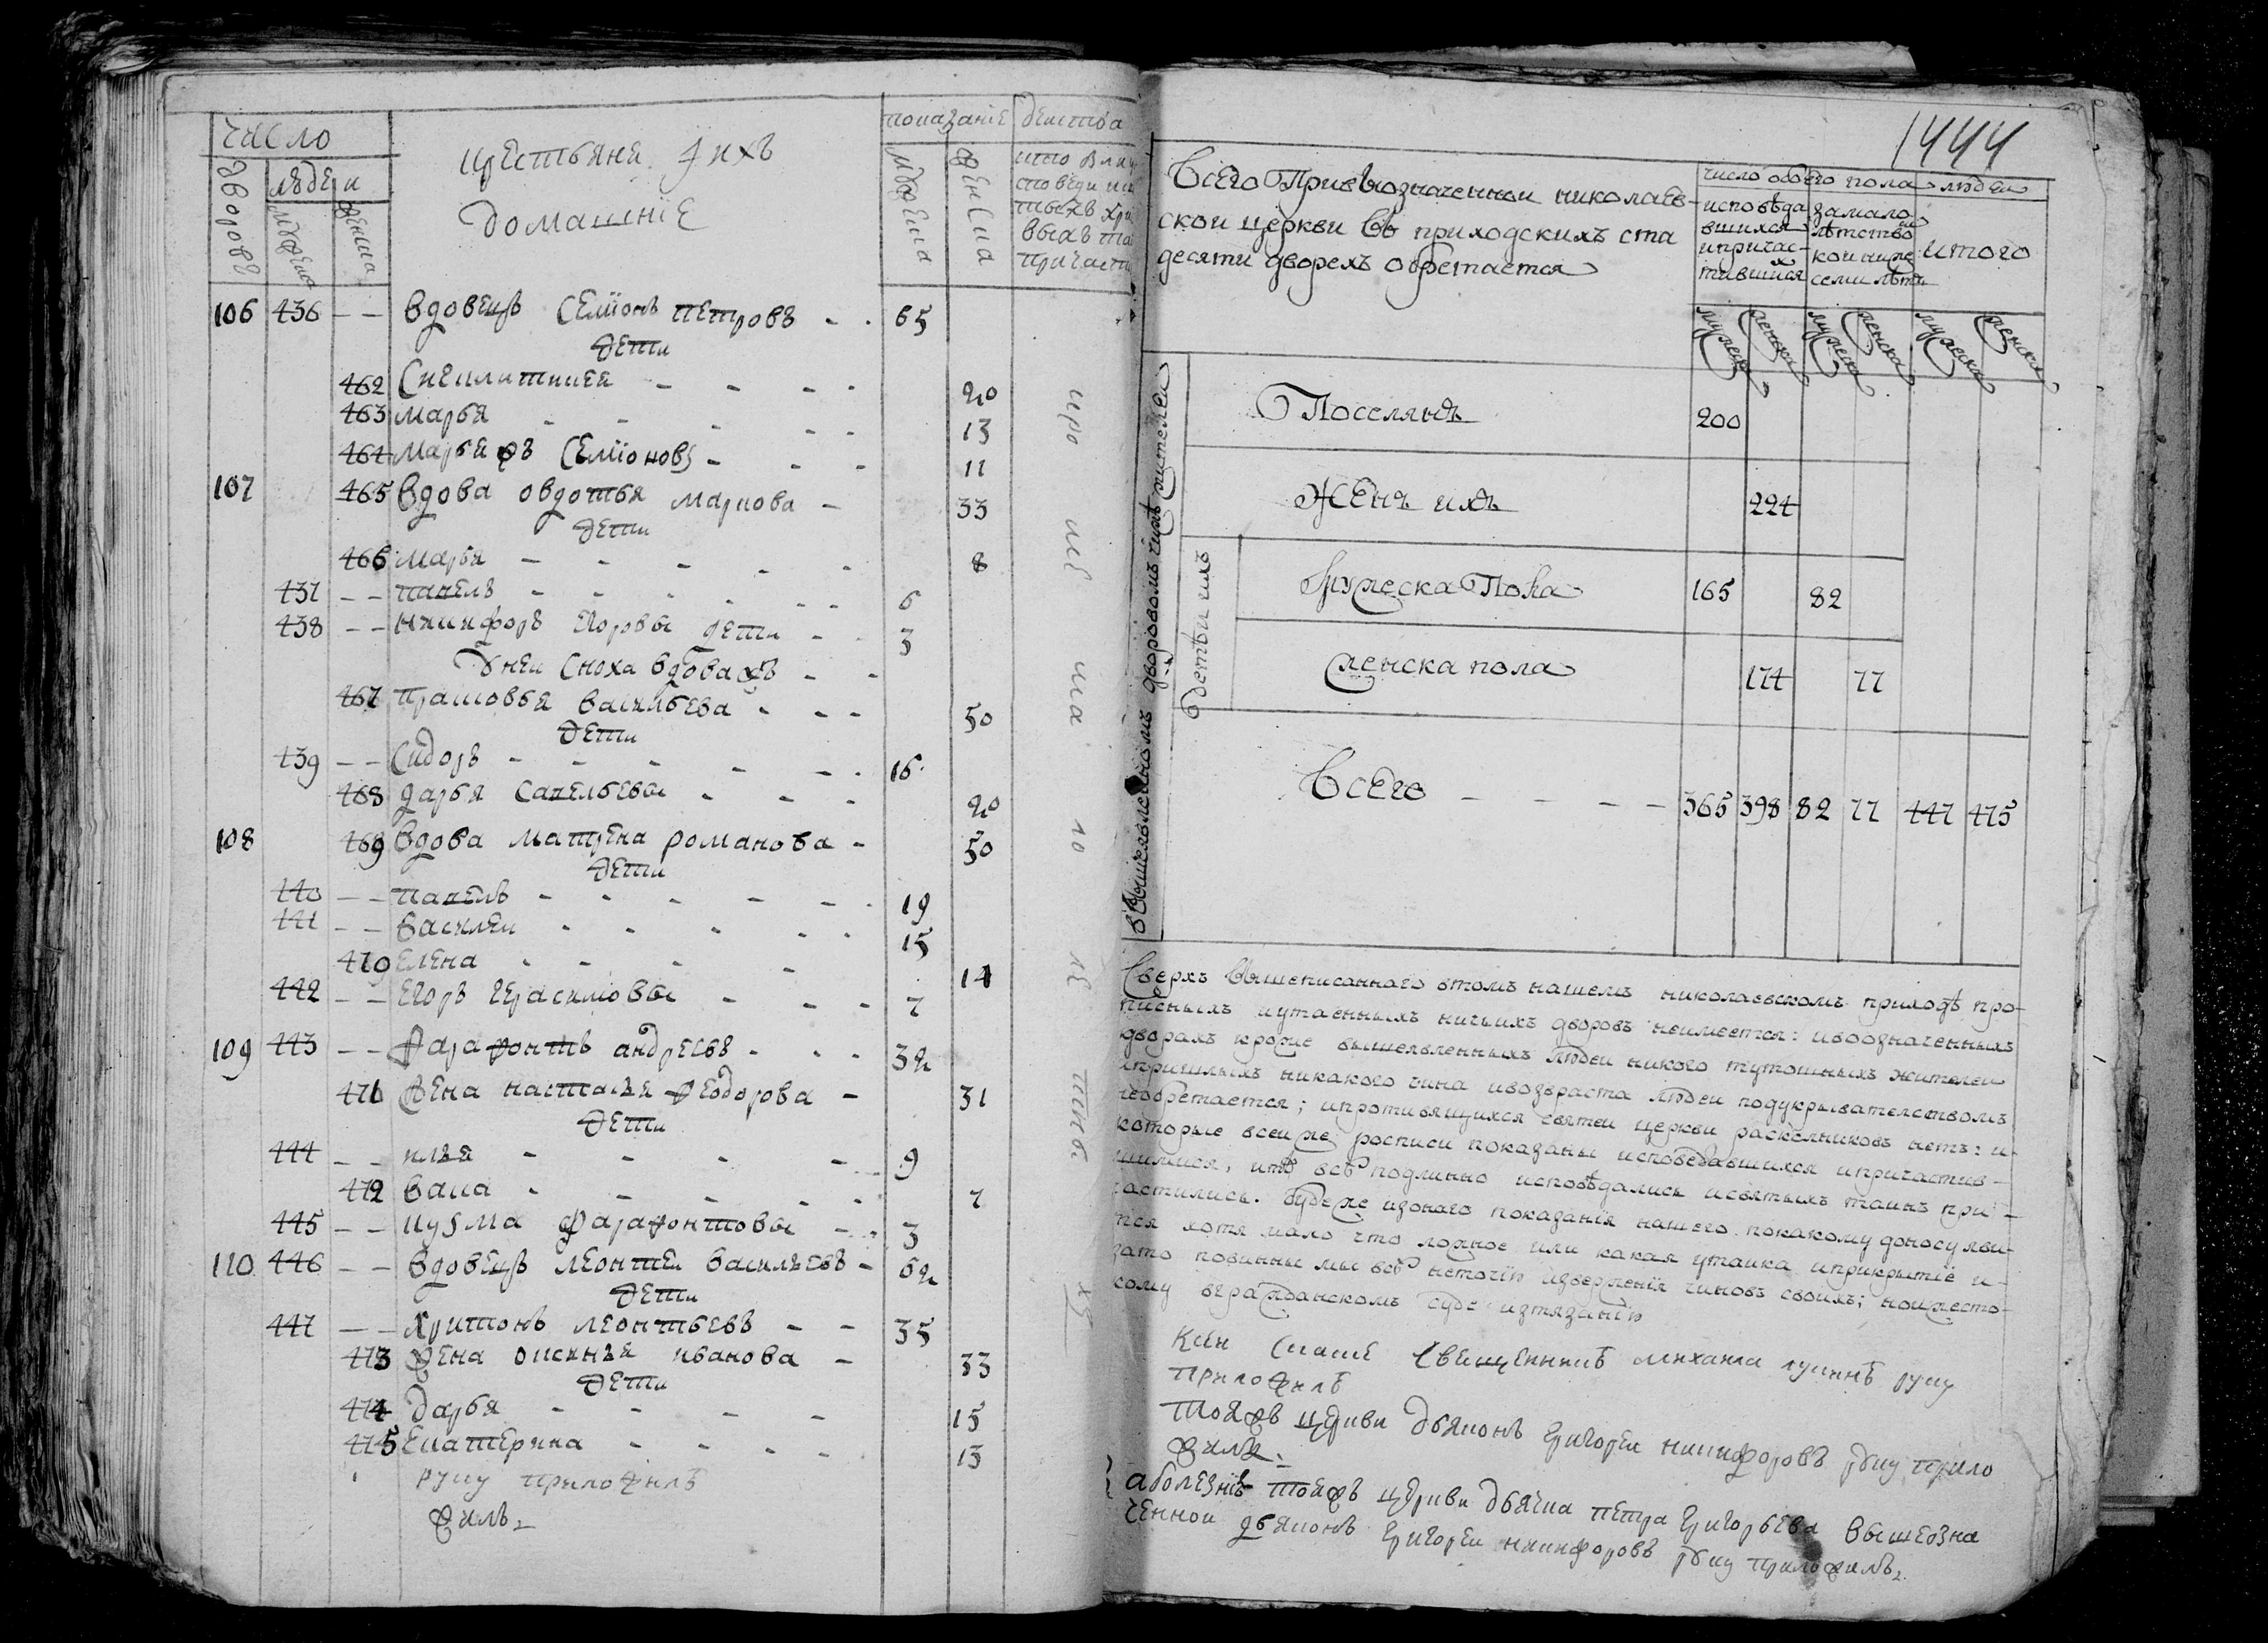 число
дворовъ
людеи
мужеска
женска
крестьяне и ихъ
домашнiе
показанiе
мужеска
женска
действа
кто былъ
106 436 — — вдовецъ семионъ петровъ - - 65
дети
462 - - - - 20
463 марья - - - - 13
464 марья жъ семионовы - - - 11
107 465 вдова овдотья маркова - 33
дети
466 марья - - - - - 8
437 — — павелъ - - - - - 6
438 — — никифоръ егоровы дети - - 3
у неи сноха вдова жъ - -
467 прасковья васильева - - - 50
дети
439 — — сидоръ - - - - - 16
468 дарья савельевы - - - 20
108 469 вдова матрена романова - 50
дети
440 — — павелъ - - - - - 19
441 — — василеи - - - - - 15
470 елена - - - - 14
442 — — егоръ герасимовы - - - 7
109 443 — — фарафонтъ андреевъ - - - 32
471 жена настасья феодорова - 31
дети
444 — — илья - - - - 9
472 васа - - - - - 7
445 — — кузма фарафонтовы - - 3
110 446 — — вдовецъ леонтеи васильевъ - 62
дети
447 — — харитонъ леонтьевъ - - 35
473 жена оксинья иванова - 33
дети
474 дарья - - - - 15
475 екатерина - - - - 13
руку приложилъ
жилъ
1444
Всего При вышеозначеннои николаев-
скои церкви въ приходскихъ ста
десяти дворехъ обретается
число обоего пола людеи
исповеда
вшихся
и причас-
тившихся
за мало
летство
кои ниже
семи летъ
итого
мужеска женска мужеска женска мужеска женска
в вышеявленномъ дворовомъ числе жителеи
Поселянъ 200
Женъ ихъ 224
детеи ихъ
Мужеска Пола 165 82
женска пола 174 77
Всего - - - - 365 398 82 77 447 475
Сверхъ вышеписаннаго в томъ нашемъ николаевскомъ приходѣ про-
писныхъ и утаенныхъ ничьихъ дворовъ неимеется: и в означенныхъ
дворахъ кроме вышеявленныхъ людеи никого тутошныхъ жителеи
и пришлыхъ никакого чина и возвраста людеи подукрывателствомъ
необретается; и противящихся святеи церкви раскольниковъ нетъ: и
которые в сеи же росписи показаны исповедавшихся и причастив-
шимися, и тѣ всѣ подлинно исповѣдались и святыхъ таинъ при-
частились. буде же из онаго показанiя нашего по какому доносу яви-
тся хотя мало что ложное или какая утаика и прикрытiе и
зато повинны мы всѣ неточiю изверженiя чиновъ своихъ; но и жесто-
кому в гражданскомъ суде изтязанiю
К сеи сказке священникъ михаила лукинъ руку
приложилъ
Тоя жъ церкви дьяконъ григореи никифоровъ руку прило
жилъ
а болезни тоя жъ церкви дьячка петра григорьева вышеозна
ченнои дьяконъ григореи никифоровъ руку приложилъ